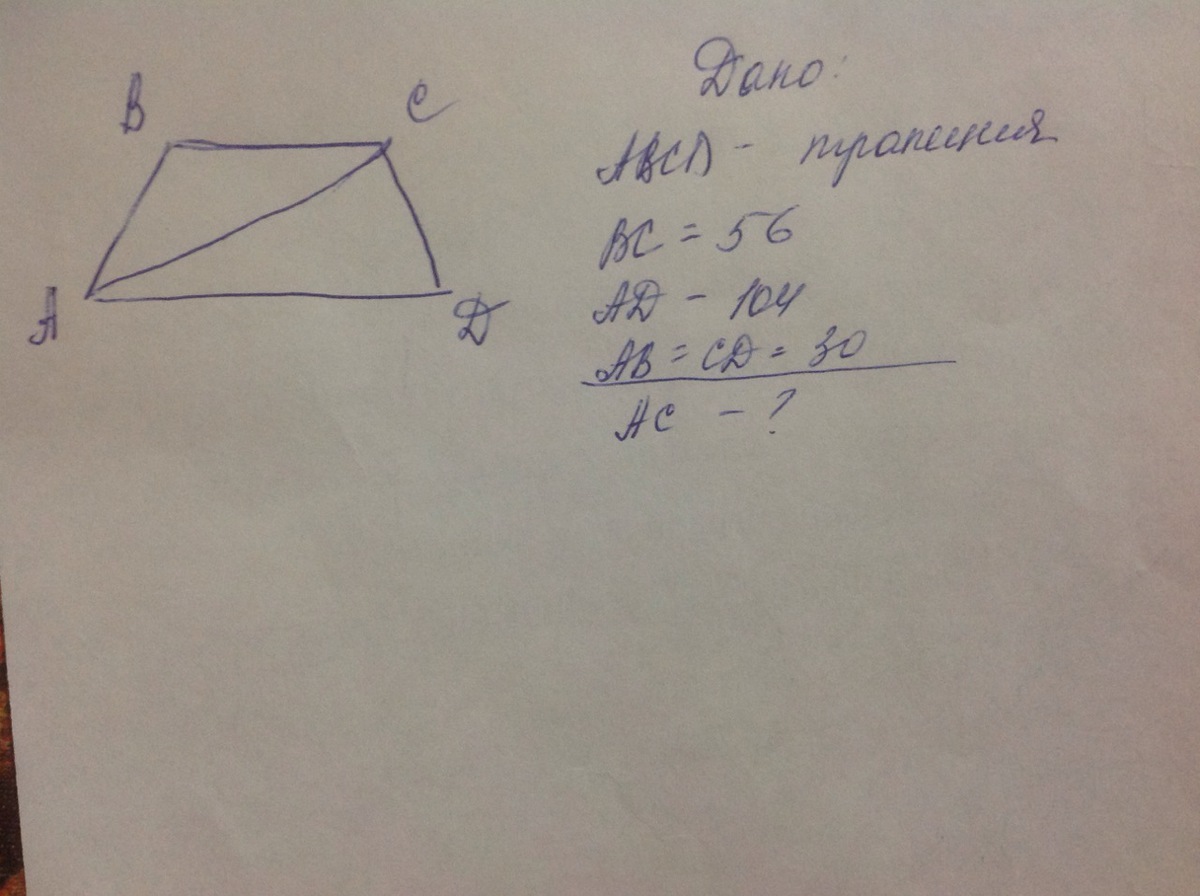 B C
A D
Дано:
ABCD - трапеция
BC = 56
AD - 104
AB = CD = 30
AC - ?